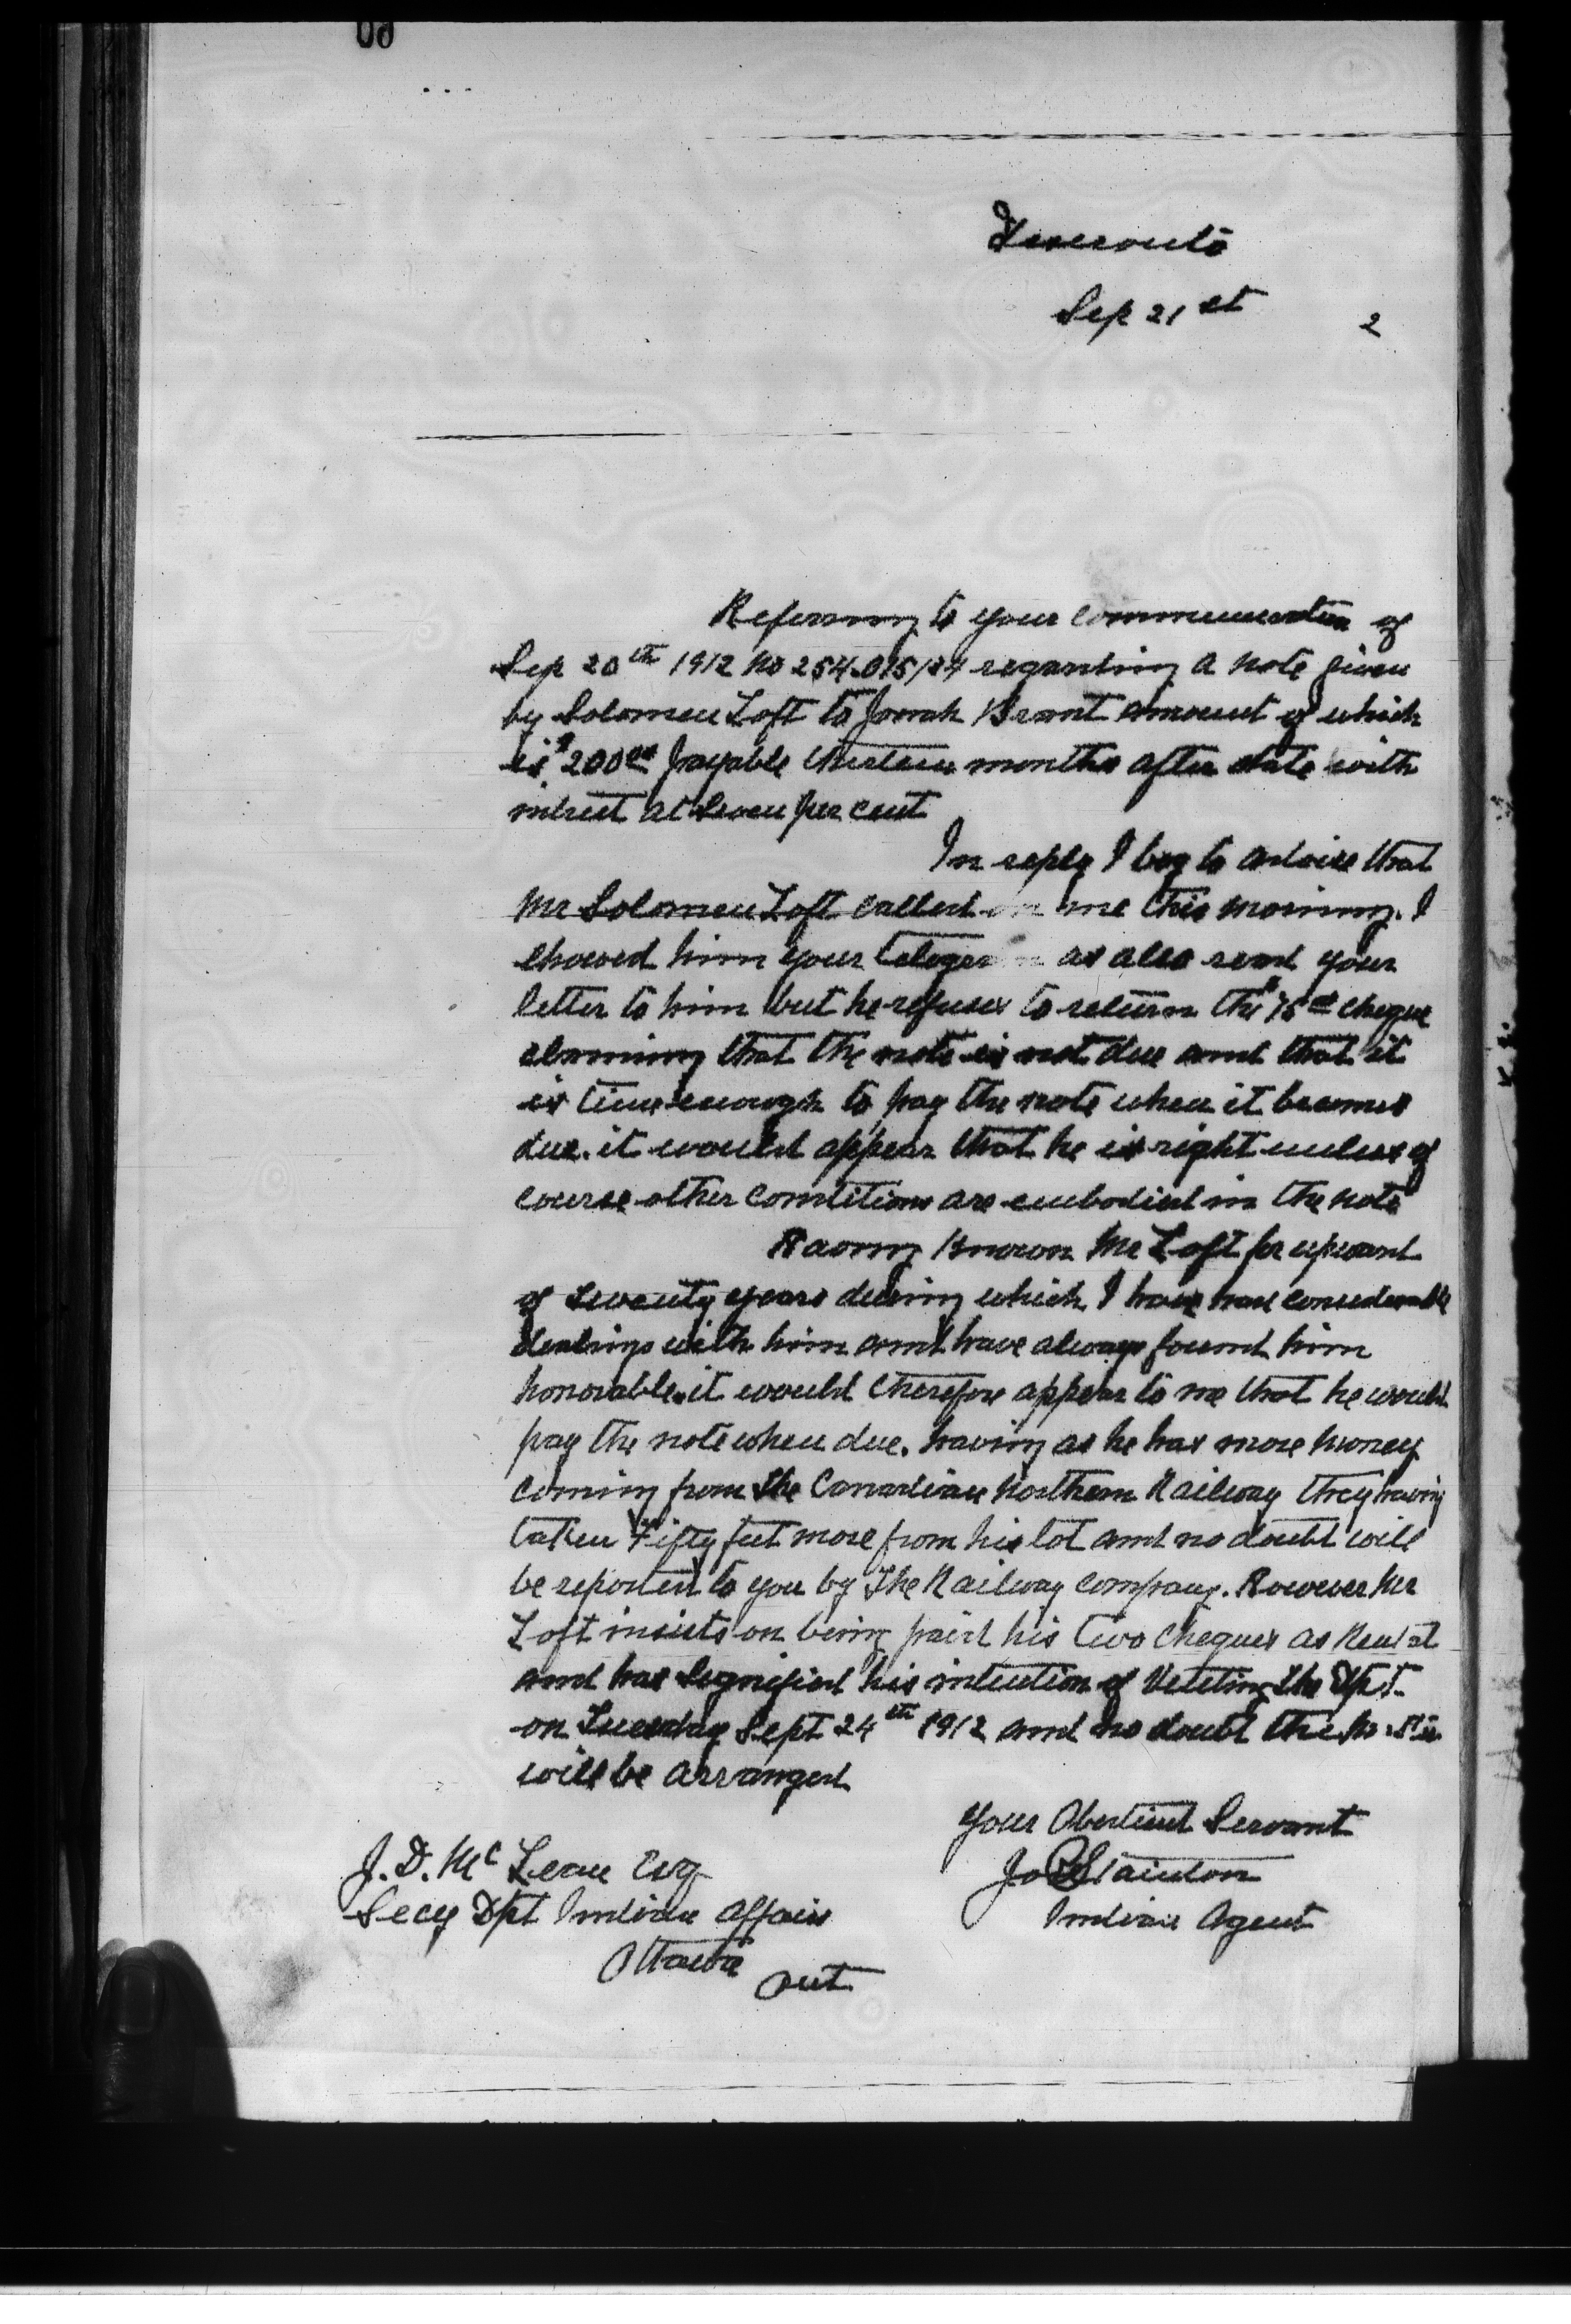 Deseronto
Sep 21st 2
Referring to your communication of
Sep 20th 1912 No 254.015/24 regarding a note given
by Solomon Loft to Josiah Brant amount of which
is $200.00 payable thirteen months after date with
intrest at Seven per cent
In reply I beg to advise that
Mr Solomon Loft called on me this morning. I
showed him your telegram as also read your
letter to him but he refuses to return the $75.00 cheque
claiming that the note is not due and that it
is time enough to pay the note when it becomes
due. it would appear that he is right unless of
course other conditions are embodied in the note
Having Known Mr Loft for upward
of Seventy years during which I have had considerable
dealings with him and have always found him
honorable. it would therefore appear to me that he would
pay the note when due. having as he has more money
coming from the Canadian Northern Railway they having
taken Fifty feet more from his lot and no doubt will
be reported to you by The Railway Company. However Mr
Loft insists on being paid his two cheques as Rental
and has Signified his intention of Visiting the Dpt.
on Tuesday Sept 24th 1912 and no doubt the
will be arranged
Your Obedient Servant
Jos Stainton
Indian Agent
J. D. McLean Esq
Secy Dpt Indian Affairs
Ottawa
Ont